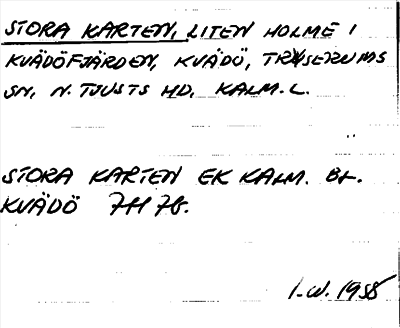 STORA KARTEN, LITEN HOLME I
KVÄDÖFJÄRDEN, KVÄDÖ, TRYSERUMS
SN, N. TJUSTS HD, KALM. L.
STORA KARTEN EK KALM. BL.
KVÄDÖ 7H 7b.
I.W. 1958